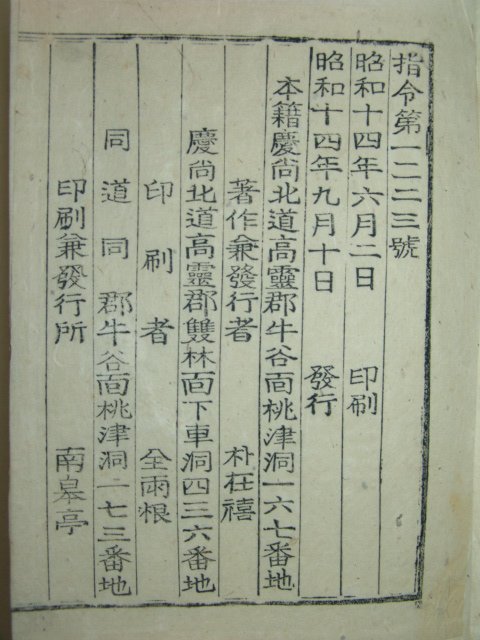 指令第一二二三號
昭和十四年六月二日 印刷
昭和十四年九月十日 發行
本籍慶尚北道高靈郡牛谷面桃津洞一六七番地
著作兼發行者 朴在禧
慶尚北道高靈郡雙林面下車洞四三六番地
印刷者 全雨根
同道同郡牛谷面桃津洞一七三番地
印刷兼發行所 南皐亭